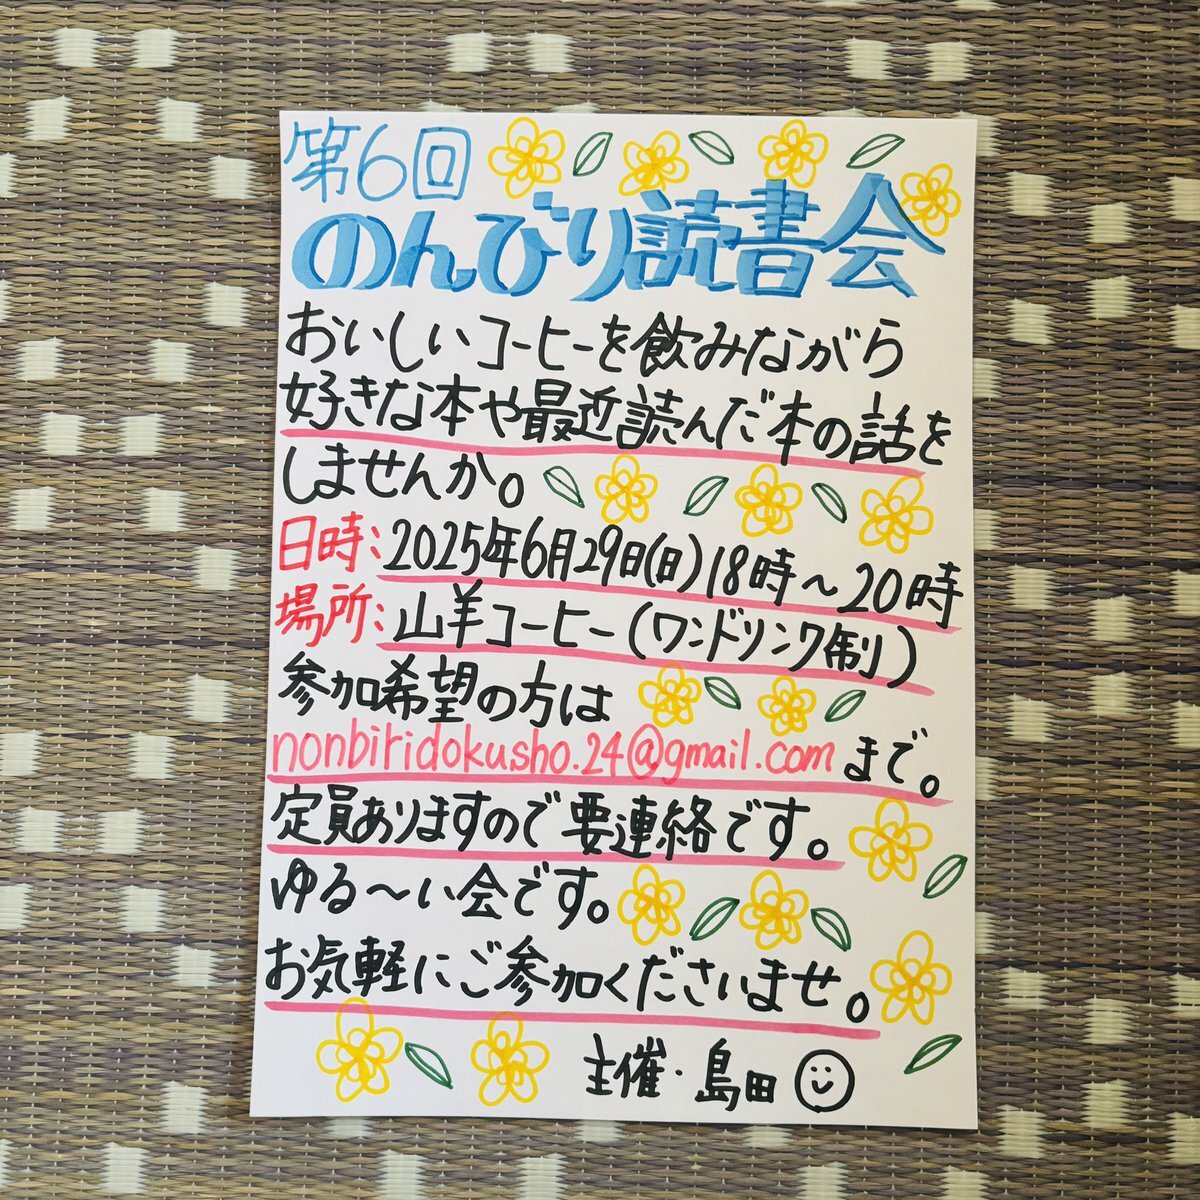 第6回
のんびり読書会
おいしいコーヒーを飲みながら
好きな本や最近読んだ本の話を
しませんか。
日時:2025年6月29日(日)18時〜20時
場所:山羊コーヒー(ワンドリンク制)
参加希望の方は
nonbiridokusho.24@gmail.comまで。
定員ありますので要連絡です。
ゆる〜い会です。
お気軽にご参加くださいませ。
主催・島田